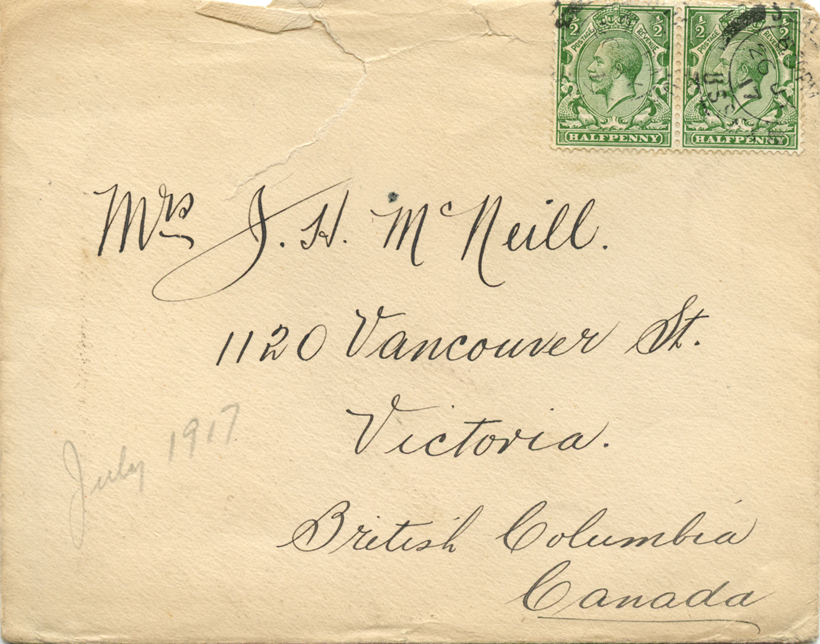 ½ ½ ½ ½
POSTAGE REVENUE POSTAGE
HALFPENNY HALFPENNY
Mrs J. H. McNeill.
1120 Vancouver St.
Victoria.
July 1917
British Columbia
Canada